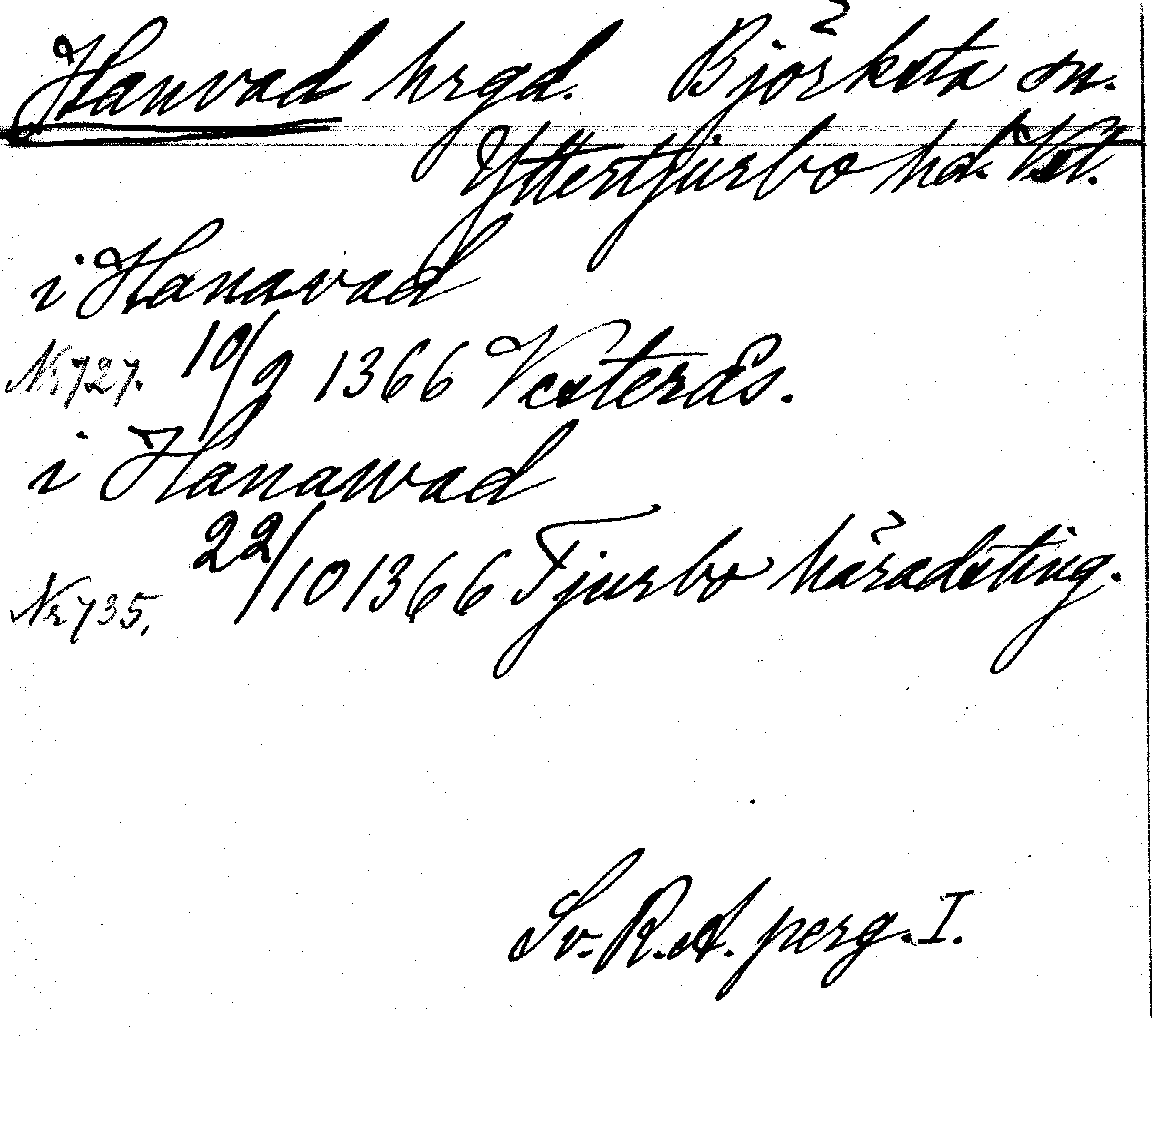 Hanvad hrgd. Björksta sn.
Yttertjurbo hd. Vst.
i Hanavad
Nr 727. 10/9 1366 Vesterås.
i Hanawad
22/10 1366 Tjurbo häradsting.
Nr 735.
Sv. R. A. perg. I.